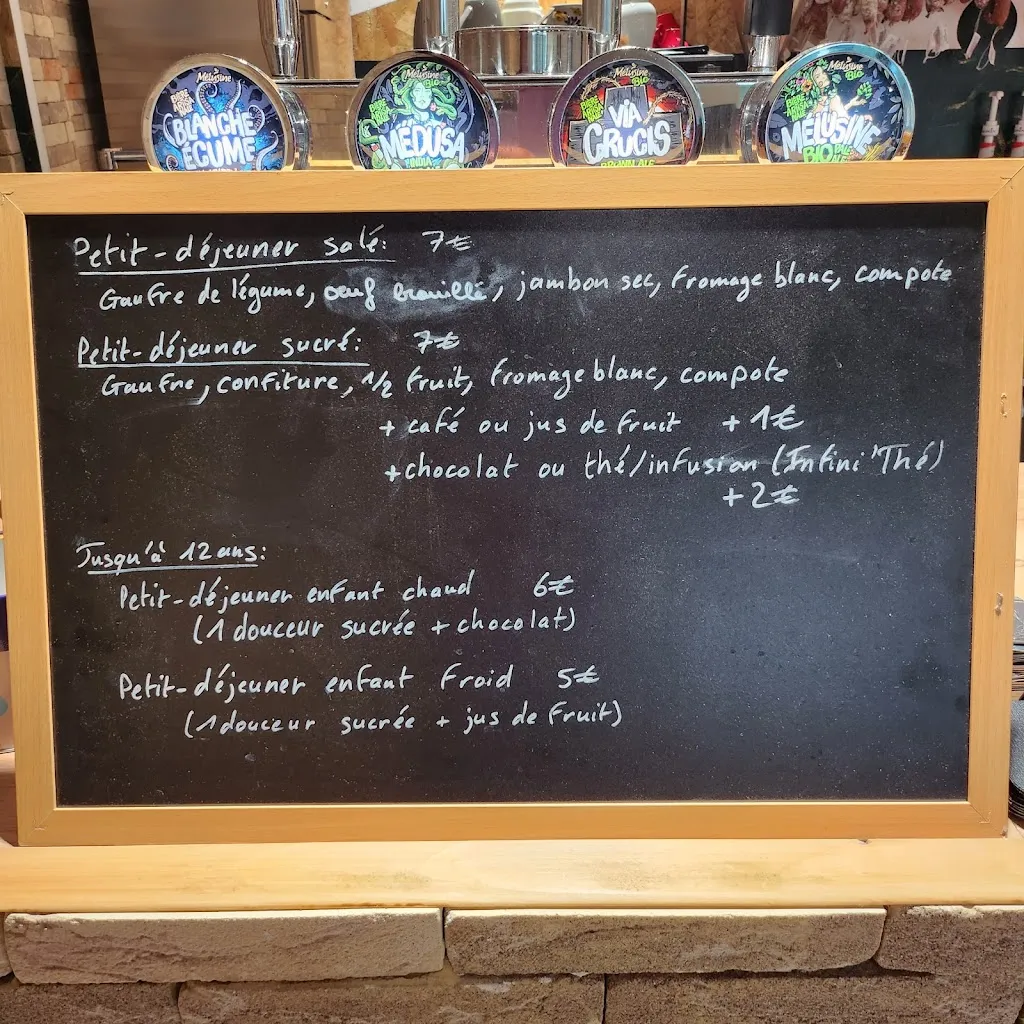 Mélusine
BLANCHE
ÉCUME
Mélusine
Bio
MÉDUSA
INDIA
Mélusine
Bio
VIA
CRUCIS
BROWN ALE
Mélusine
MELUSINE
BIO
Petit-déjeuner salé: 7€
Gaufre de légume, œuf brouillé, jambon sec, fromage blanc, compote
Petit-déjeuner sucré: 7€
Gaufre, confiture, 1/2 fruit, fromage blanc, compote
+ café ou jus de fruit + 1€
+ chocolat ou thé/infusion (Infini'Thé)
+ 2€
Jusqu'à 12 ans:
Petit-déjeuner enfant chaud 6€
(1 douceur sucrée + chocolat)
Petit-déjeuner enfant froid 5€
(1 douceur sucrée + jus de fruit)